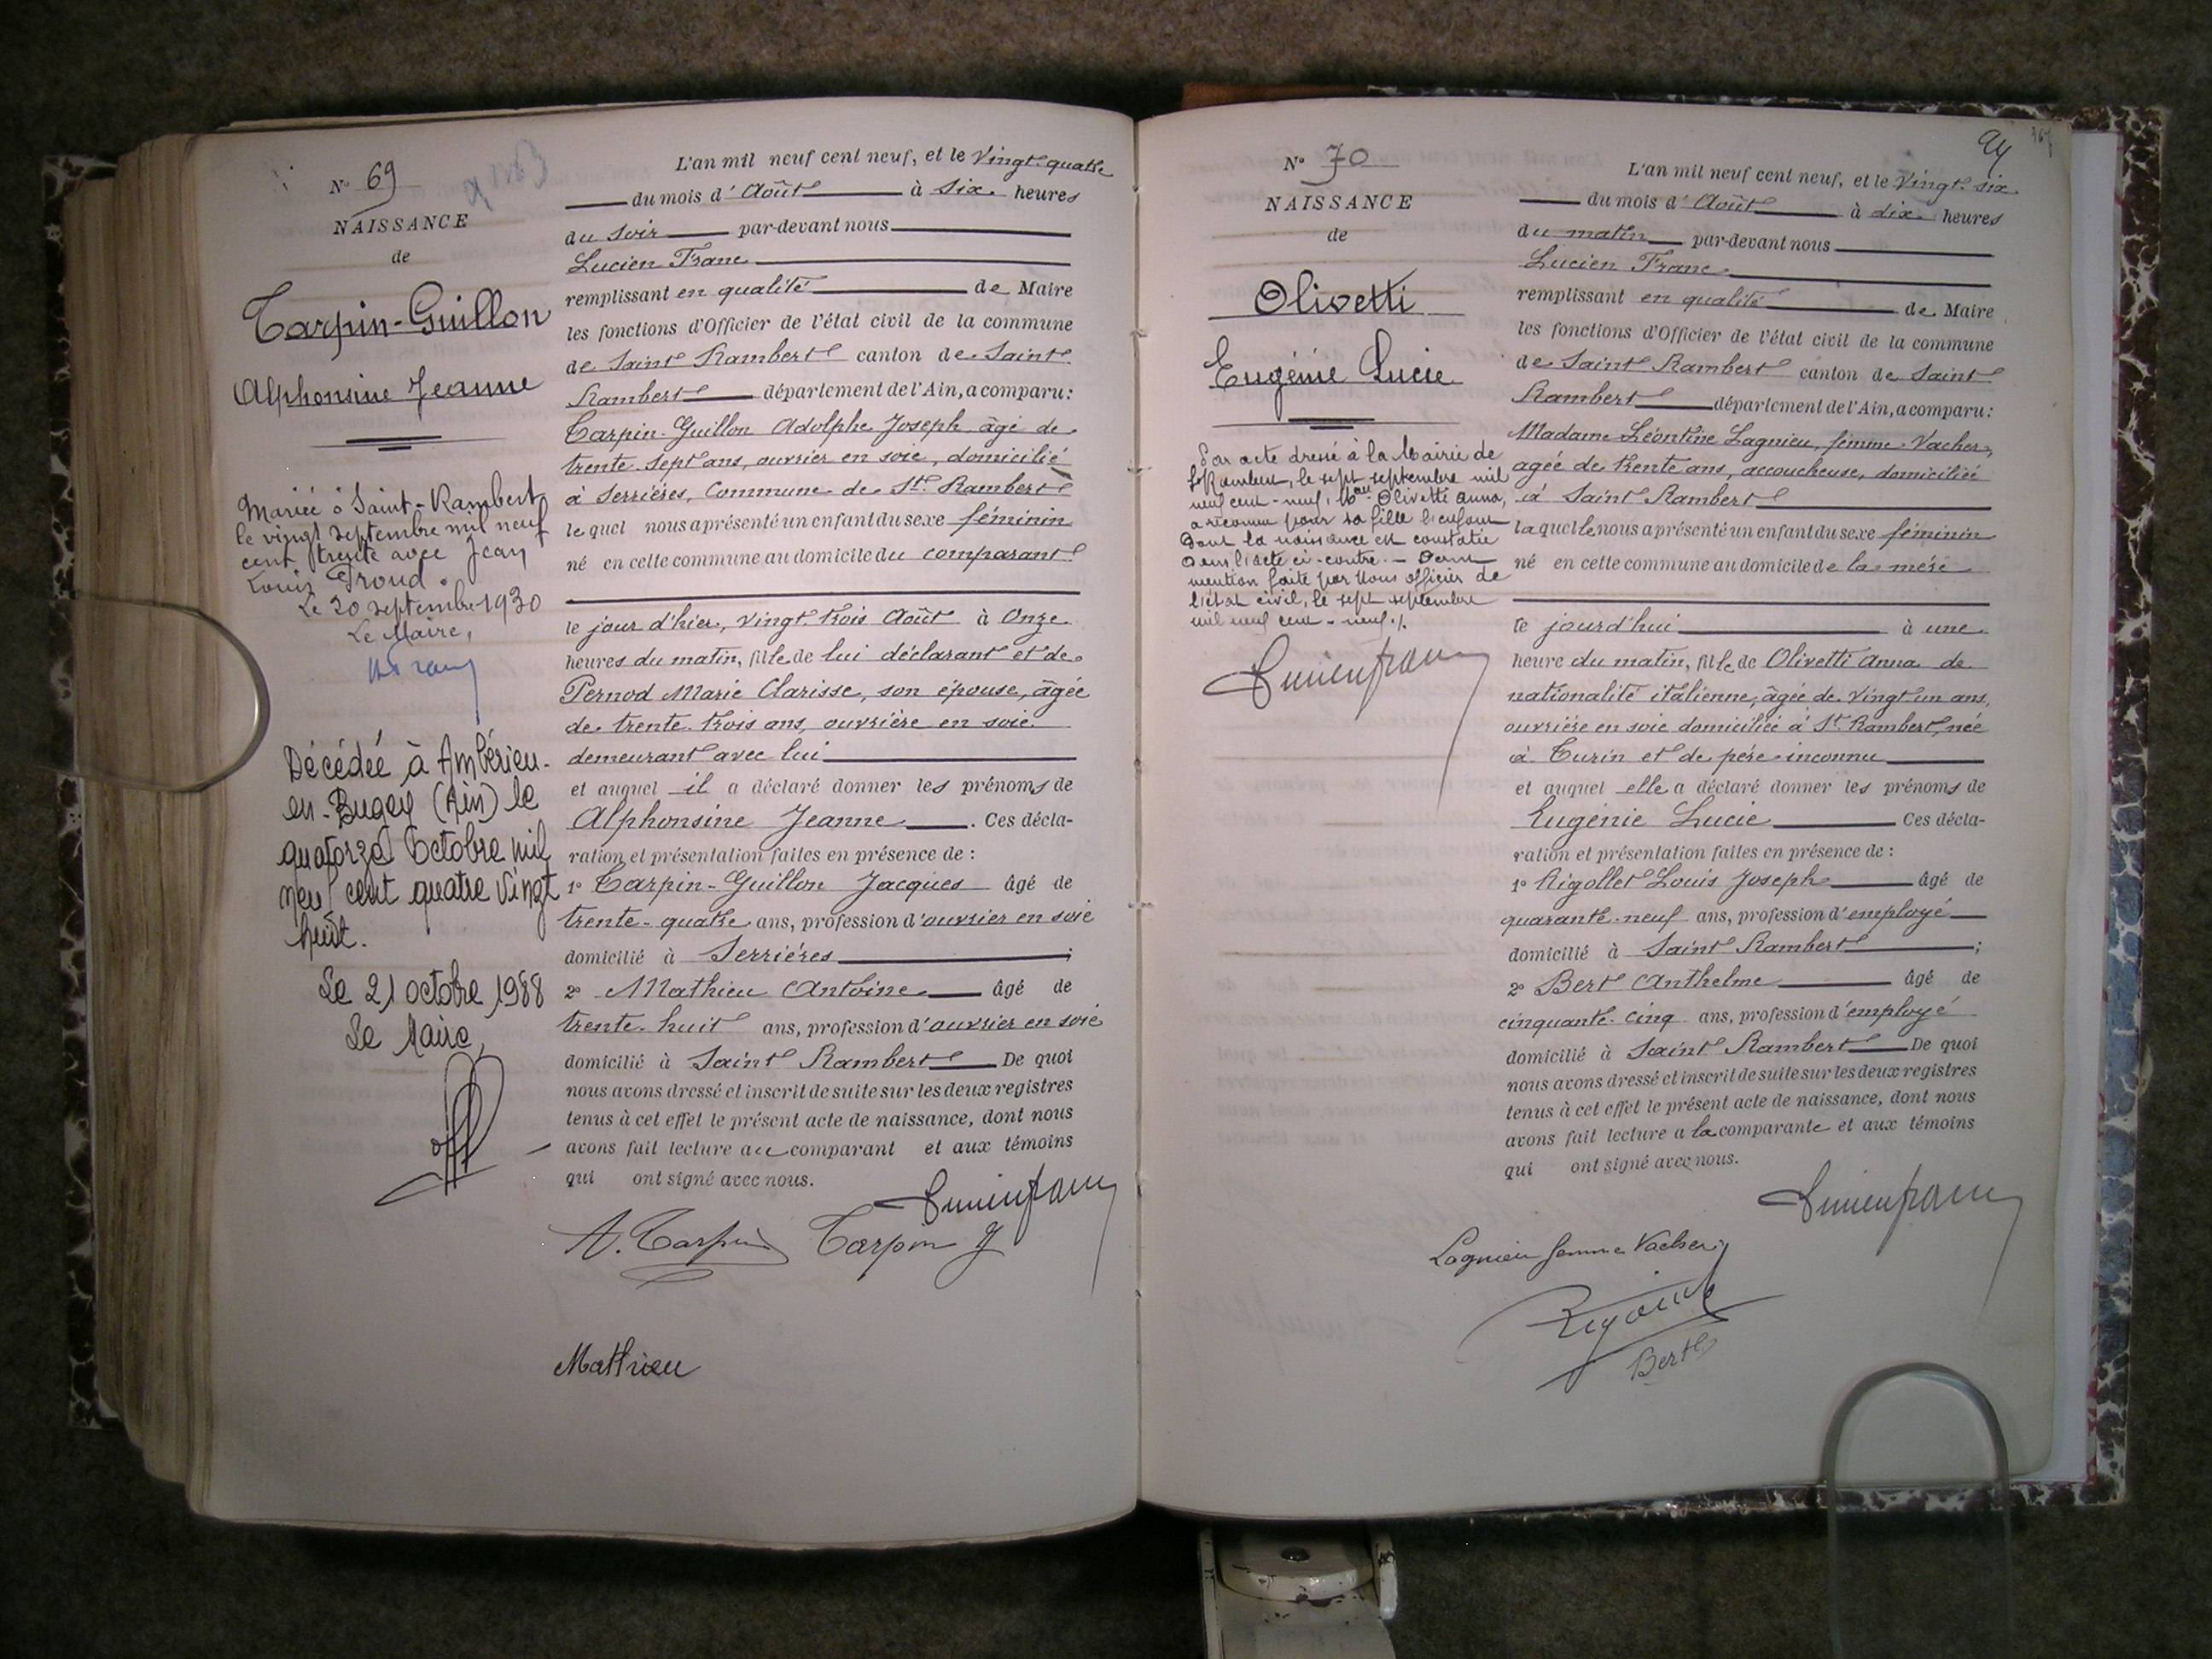 N° 69
NAISSANCE
de
Tarpin-Guillon
Alphonsine Jeanne
Mariée à Saint-Rambert
le vingt septembre mil neuf
cent trente avec Jean
Louis Froud.
Le 30 septembre 1930
Le Maire,
Décédée à Ambérieu-
en-Bugey (Ain) le
quatorze Octobre mil
neuf cent quatre vingt
huit.
Le 21 octobre 1988
Le Maire,
L'an mil neuf cent neuf, et le Vingt-quatre
du mois d'Août à Six heures
du soir par-devant nous
Lucien Franc
remplissant en qualité de Maire
les fonctions d'Officier de l'état civil de la commune
de Saint Rambert canton de Saint
Rambert département de l'Ain, a comparu:
Tarpin-Guillon Adolphe Joseph âgé de
trente-sept ans, ouvrier en soie, domicilié
à Serrières, Commune de St. Rambert
lequel nous a présenté un enfant du sexe féminin
né en cette commune au domicile du comparant
le jour d'hier, vingt-trois Août à Onze
heures du matin, fille de lui déclarant et de
Pernod Marie Clarisse, son épouse, âgée
de trente-trois ans, ouvrière en soie
demeurant avec lui
et auquel il a déclaré donner les prénoms de
Alphonsine Jeanne. Ces décla-
ration et présentation faites en présence de :
1° Tarpin-Guillon Jacques âgé de
trente-quatre ans, profession d'ouvrier en soie
domicilié à Serrières ;
2° Mathieu Antoine âgé de
trente-huit ans, profession d'ouvrier en soie
domicilié à Saint Rambert De quoi
nous avons dressé et inscrit de suite sur les deux registres
tenus à cet effet le présent acte de naissance, dont nous
avons fait lecture au comparant et aux témoins
qui ont signé avec nous.
Lucien Franc
A. Tarpin Tarpin J
Mathieu
94
N° 70
NAISSANCE
de
Olivetti
Eugénie Lucie
Par acte dressé à la Mairie de
St Rambert, le sept septembre mil
neuf cent-neuf, Olivetti Anna,
a reconnu pour sa fille l'enfant
dont la naissance est constatée
dans l'acte ci-contre. - Dont
mention faite par Nous officier de
l'état civil, le sept septembre
mil neuf cent-neuf./.
Lucien Franc
L'an mil neuf cent neuf, et le Vingt-six
du mois d'Août à dix heures
du matin par-devant nous
Lucien Franc
remplissant en qualité de Maire
les fonctions d'Officier de l'état civil de la commune
de Saint Rambert canton de Saint
Rambert département de l'Ain, a comparu:
Madame Léontine Lagnieu, femme Vacher,
agée de trente ans, accoucheuse, domiciliée
à Saint Rambert
laquelle nous a présenté un enfant du sexe féminin
né en cette commune au domicile de la mère
le jourd'hui à une
heure du matin, fille de Olivetti Anna de
nationalité italienne, âgée de vingt un ans,
ouvrière en soie domiciliée à St. Rambert, née
à Turin et de père inconnu
et auquel elle a déclaré donner les prénoms de
Eugénie Lucie Ces décla-
ration et présentation faites en présence de :
1° Rigollet Louis Joseph âgé de
quarante-neuf ans, profession d'employé
domicilié à Saint Rambert ;
2° Bert Anthelme âgé de
cinquante-cinq ans, profession d'employé
domicilié à Saint Rambert De quoi
nous avons dressé et inscrit de suite sur les deux registres
tenus à cet effet le présent acte de naissance, dont nous
avons fait lecture a la comparante et aux témoins
qui ont signé avec nous.
Lucien Franc
Lagnieu femme Vacher
Bert